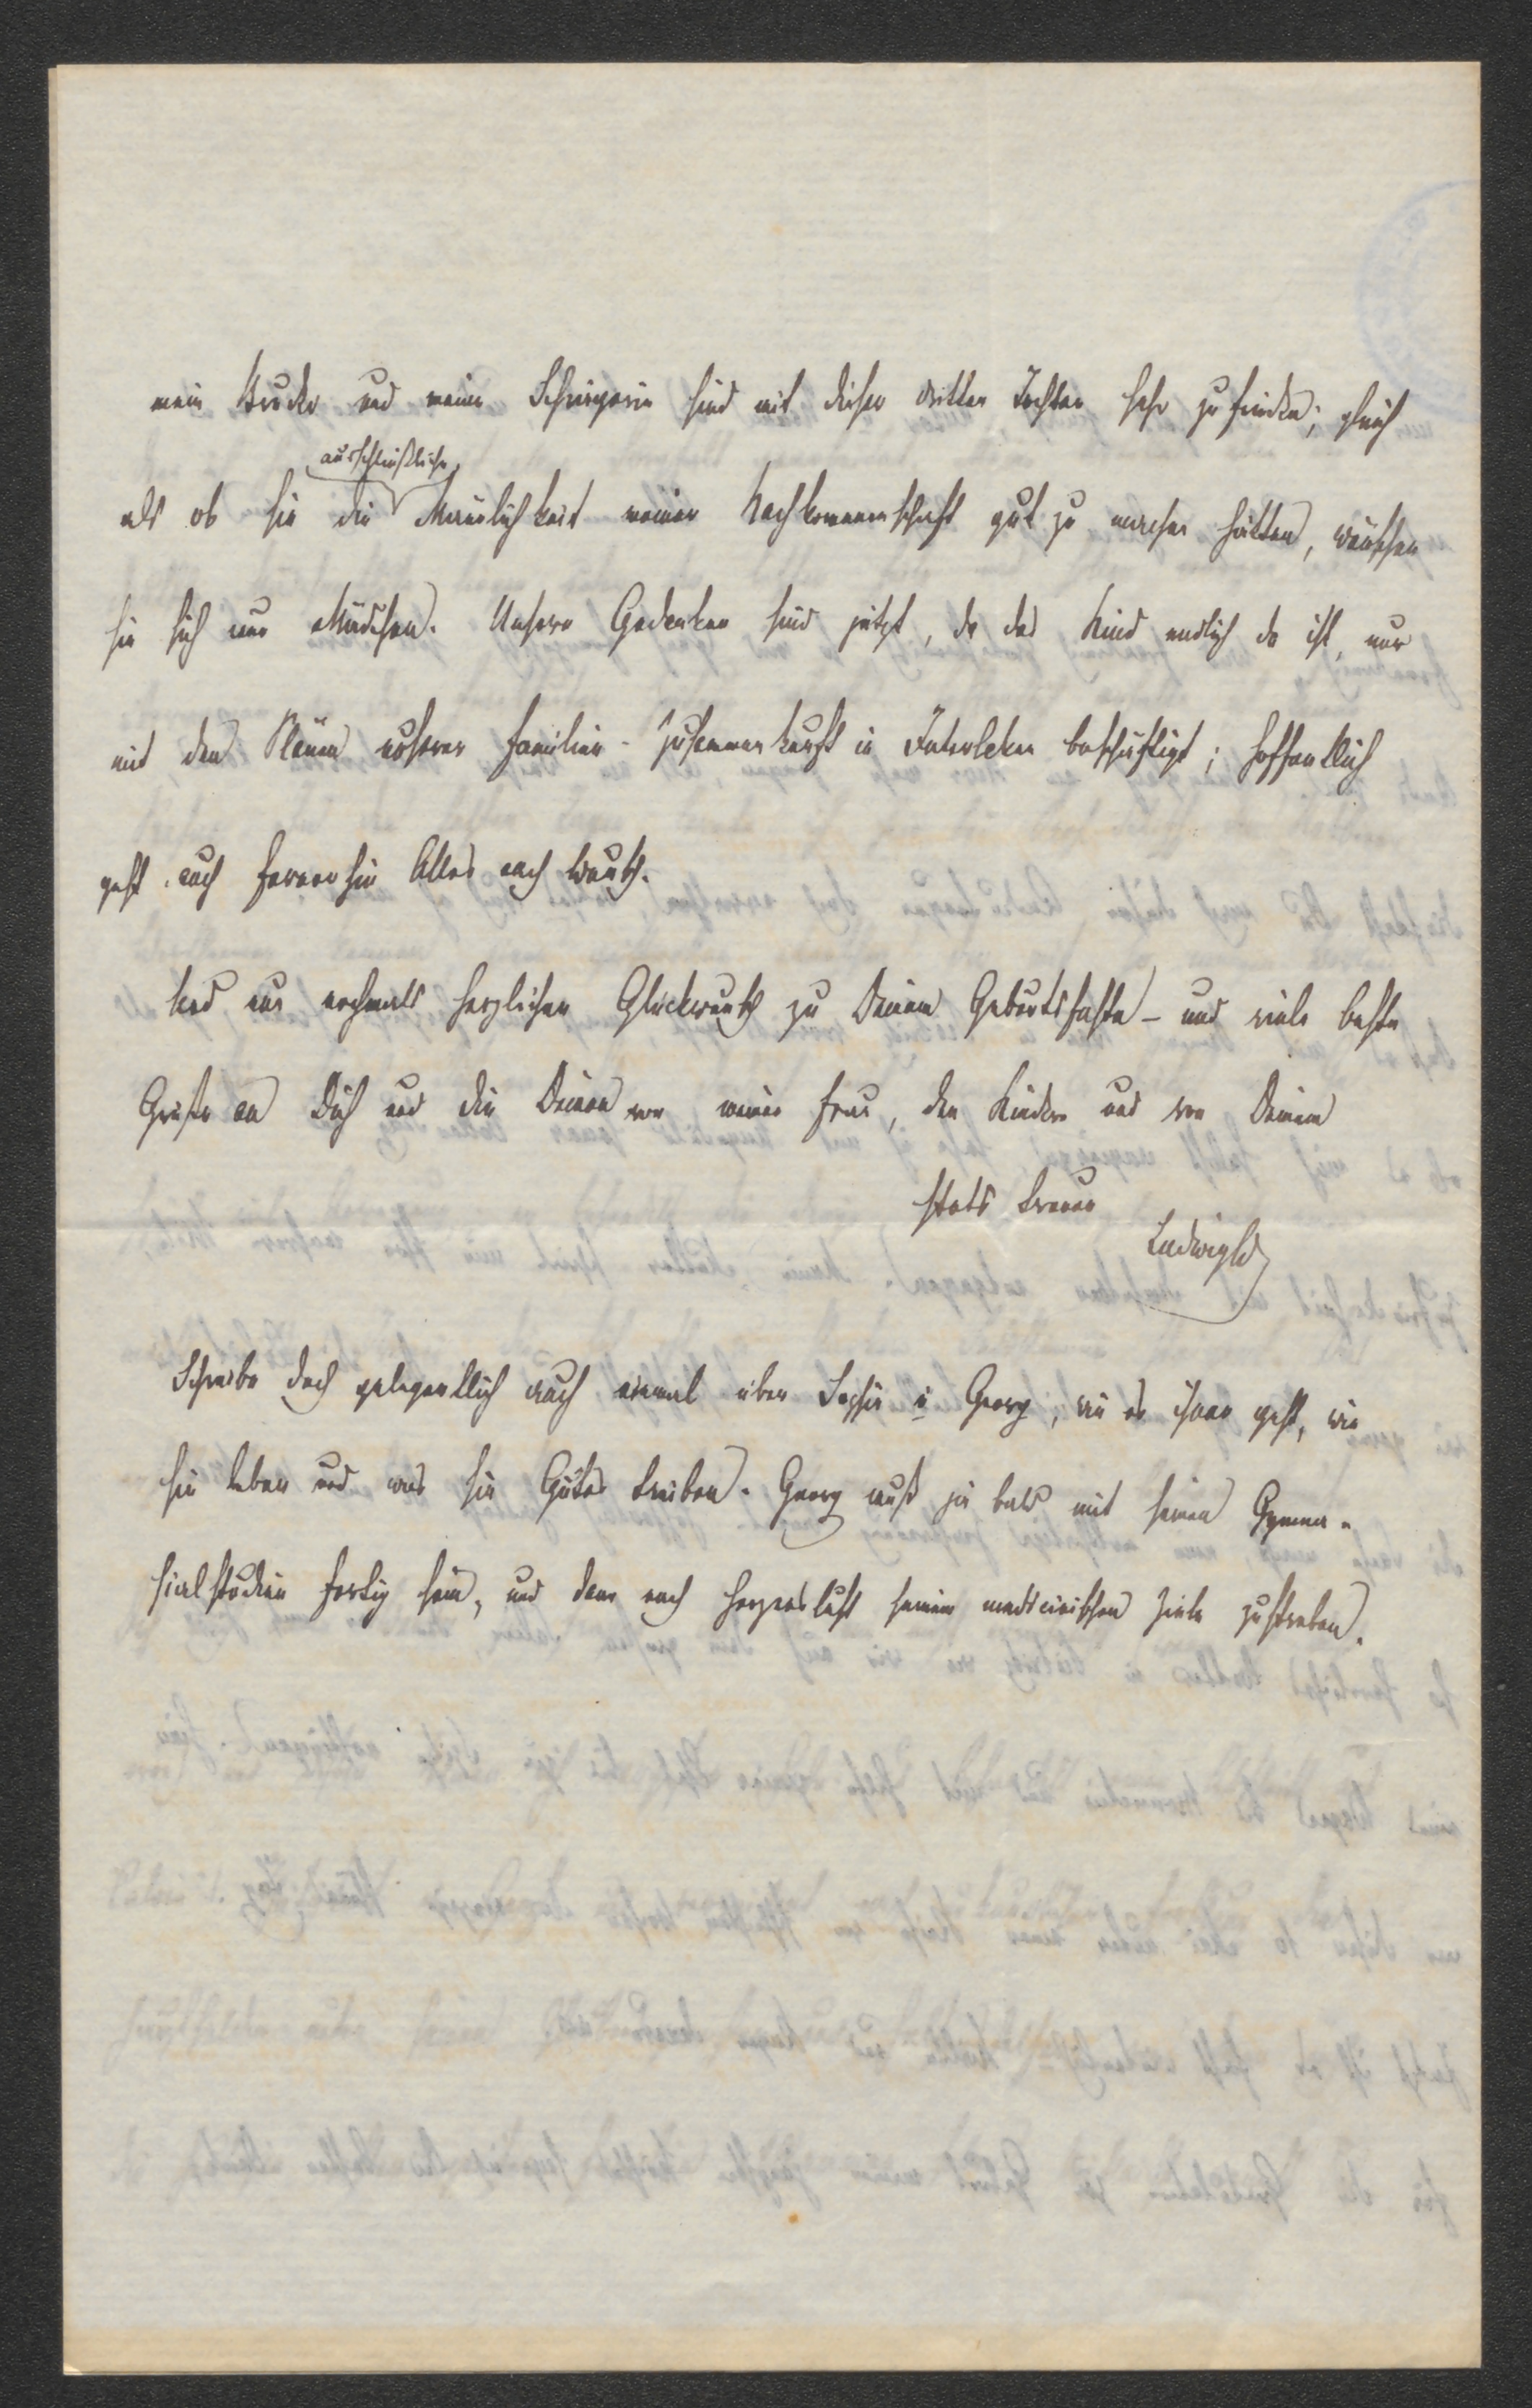 mein Bruder und meine Schwägerin sind mit dieser dritten Tochter sehr zufrieden; gleich
ausschließliche
als ob sie die Männlichkeit meiner Nachkommenschaft gut zu machen hätten, wünschen
sie sich nur Mädchen. Unsere Gedanken sind jetzt, da das Kind endlich da ist, nur
mit den Plänen unserer Familien-Zusammenkunft in Interlaken beschäftigt; hoffentlich
geht auch fernerhin Alles nach Wunsch.
Und nun nochmals herzlichen Glückwunsch zu Deinem Geburtsfeste – und viele beste
Grüße an Dich und die Deinen von meiner Frau, den Kindern und von Deinem
stets treuen
Ludwig
Schreibe doch gelegentlich auch einmal über Sophie u Georg, wie es ihnen geht, wie
sie leben und was sie Gutes treiben. Georg muß ja bald mit seinen Gymna-
sialstudien fertig sein, und dann nach Herzenslust seinem medicinischen Ziele zustreben.